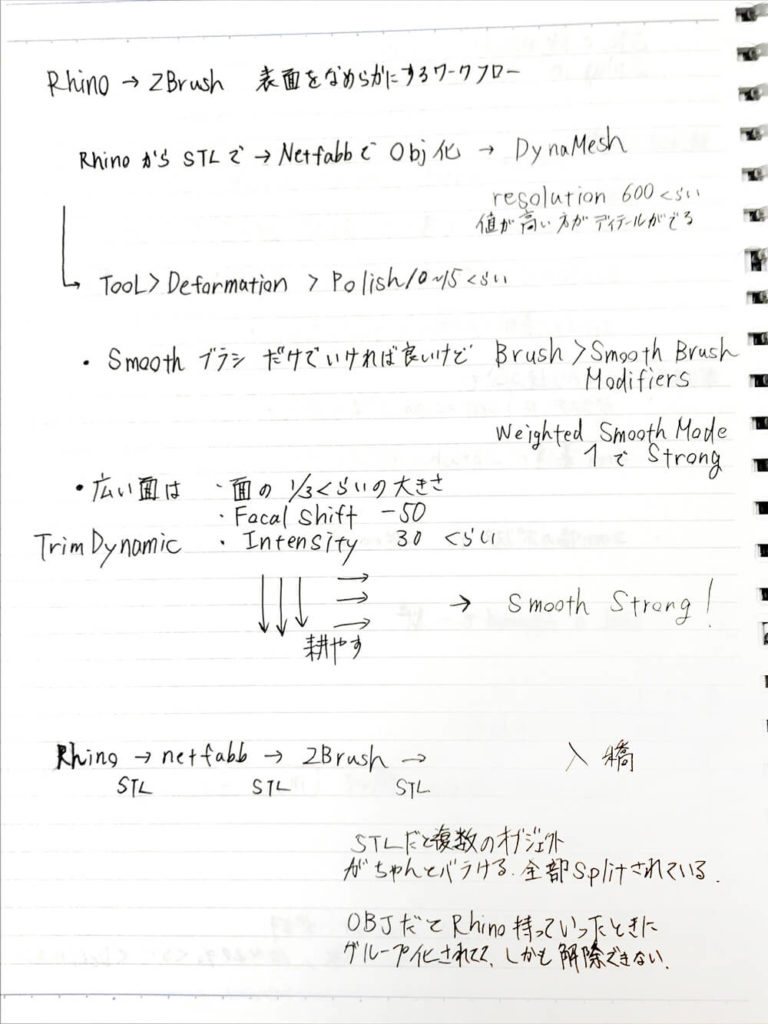 Rhino → ZBrush 表面をなめらかにするワークフロー
Rhino から STL で → Netfabb で Obj 化 → DynaMesh
resolution 600くらい
値が高い方がディテールがでる
TooL > Deformation > Polish 10~15くらい
・Smooth ブラシ だけでいければ良いけど Brush > Smooth Brush
Modifiers
Weighted Smooth Mode
1 で Strong
・広い面は ・面の 1/3くらいの大きさ
・Focal Shift -50
TrimDynamic ・Intensity 30 くらい
耕やす → Smooth Strong!
Rhino → netfabb → ZBrush → 入稿
STL STL STL
STLだと複数のオブジェクト
がちゃんとバラける. 全部Splitされている.
OBJだとRhino持っていったときに
グループ化されてて、しかも解除できない.